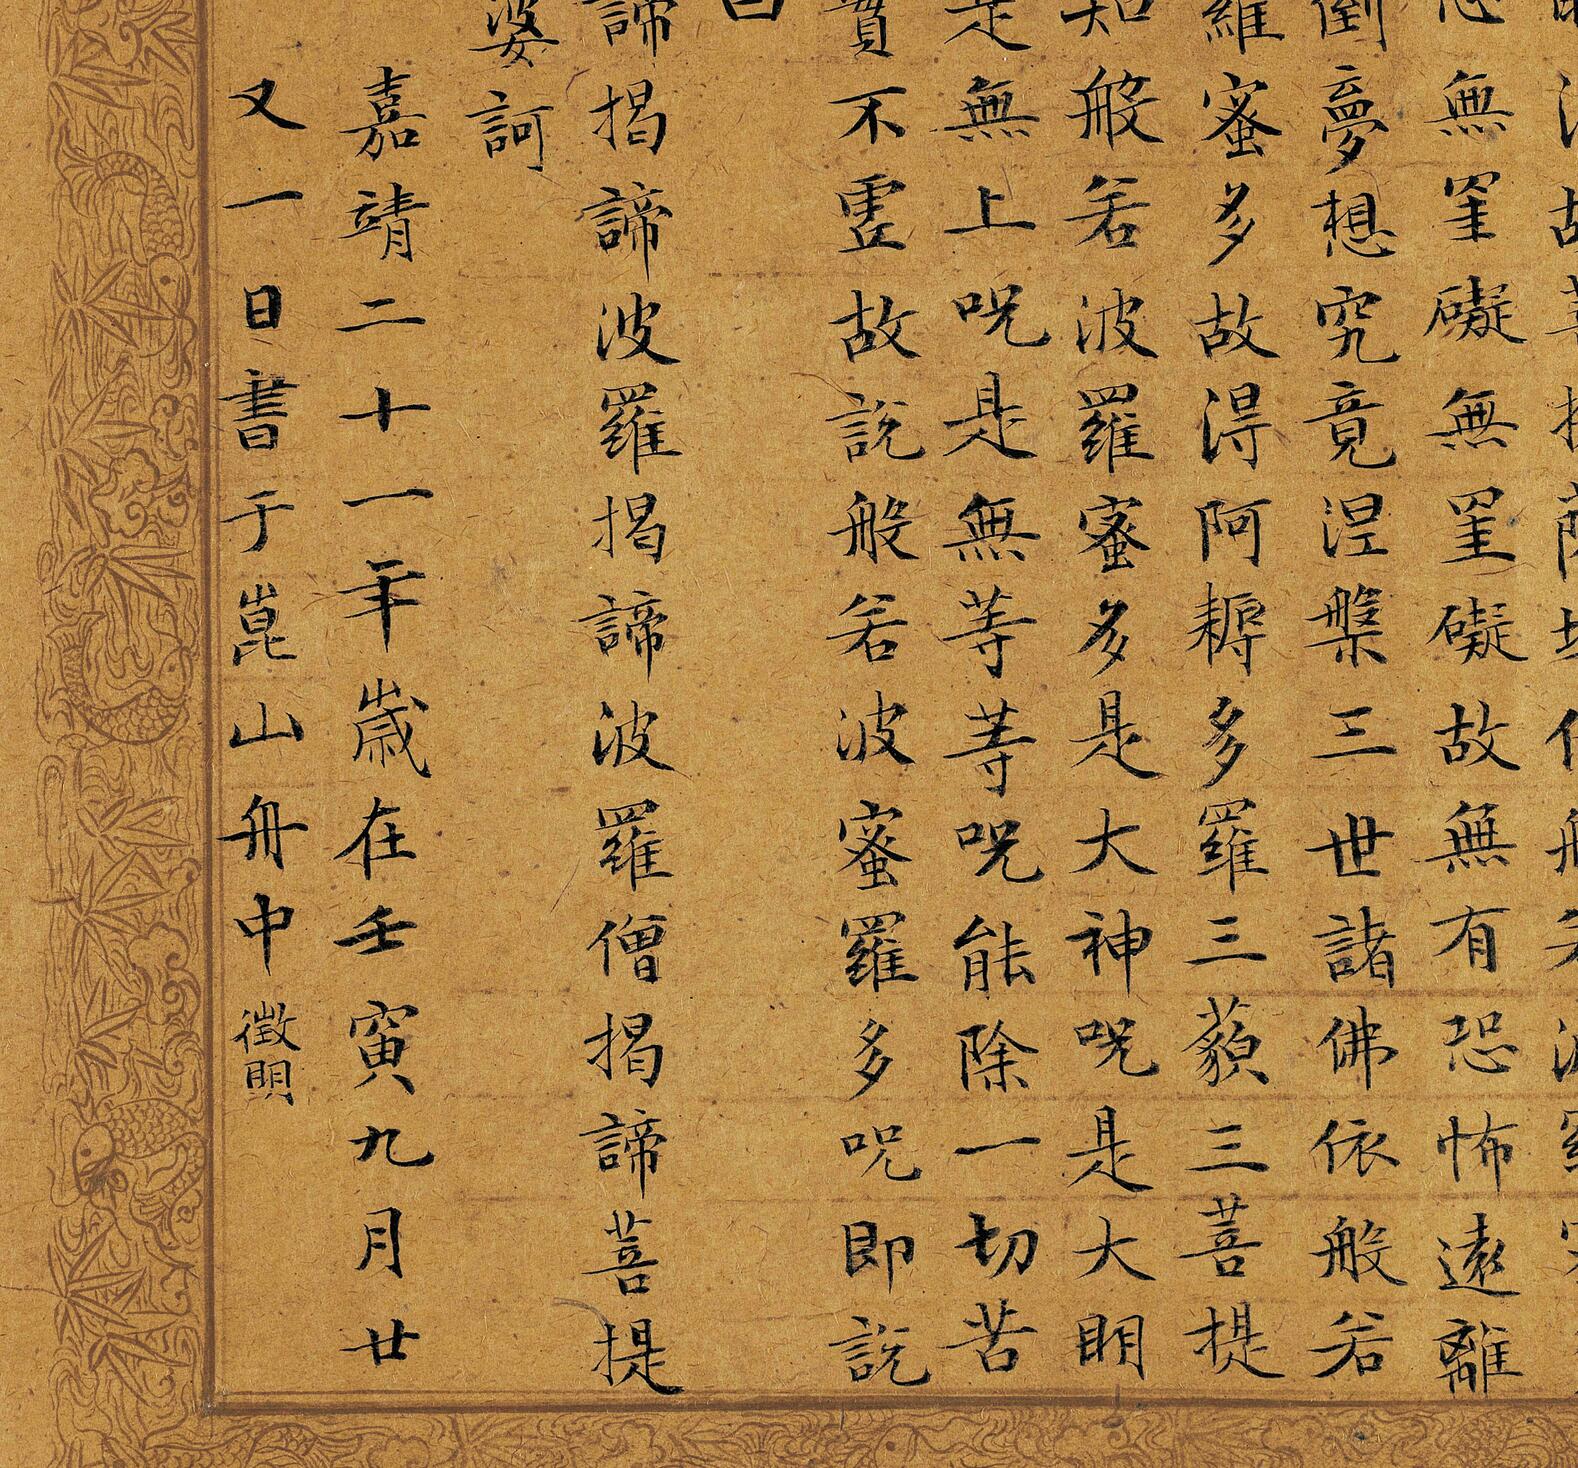 故菩提薩埵依般若波羅蜜
心無罣礙無罣礙故無有恐怖遠離
倒夢想究竟涅槃三世諸佛依般若
羅蜜多故得阿耨多羅三藐三菩提
知般若波羅蜜多是大神呪是大明
是無上呪是無等等呪能除一切苦
實不虛故說般若波蜜羅多呪即說
曰
諦揭諦波羅揭諦波羅僧揭諦菩提
婆訶
嘉靖二十一年歲在壬寅九月廿
又一日書于崑山舟中徵明